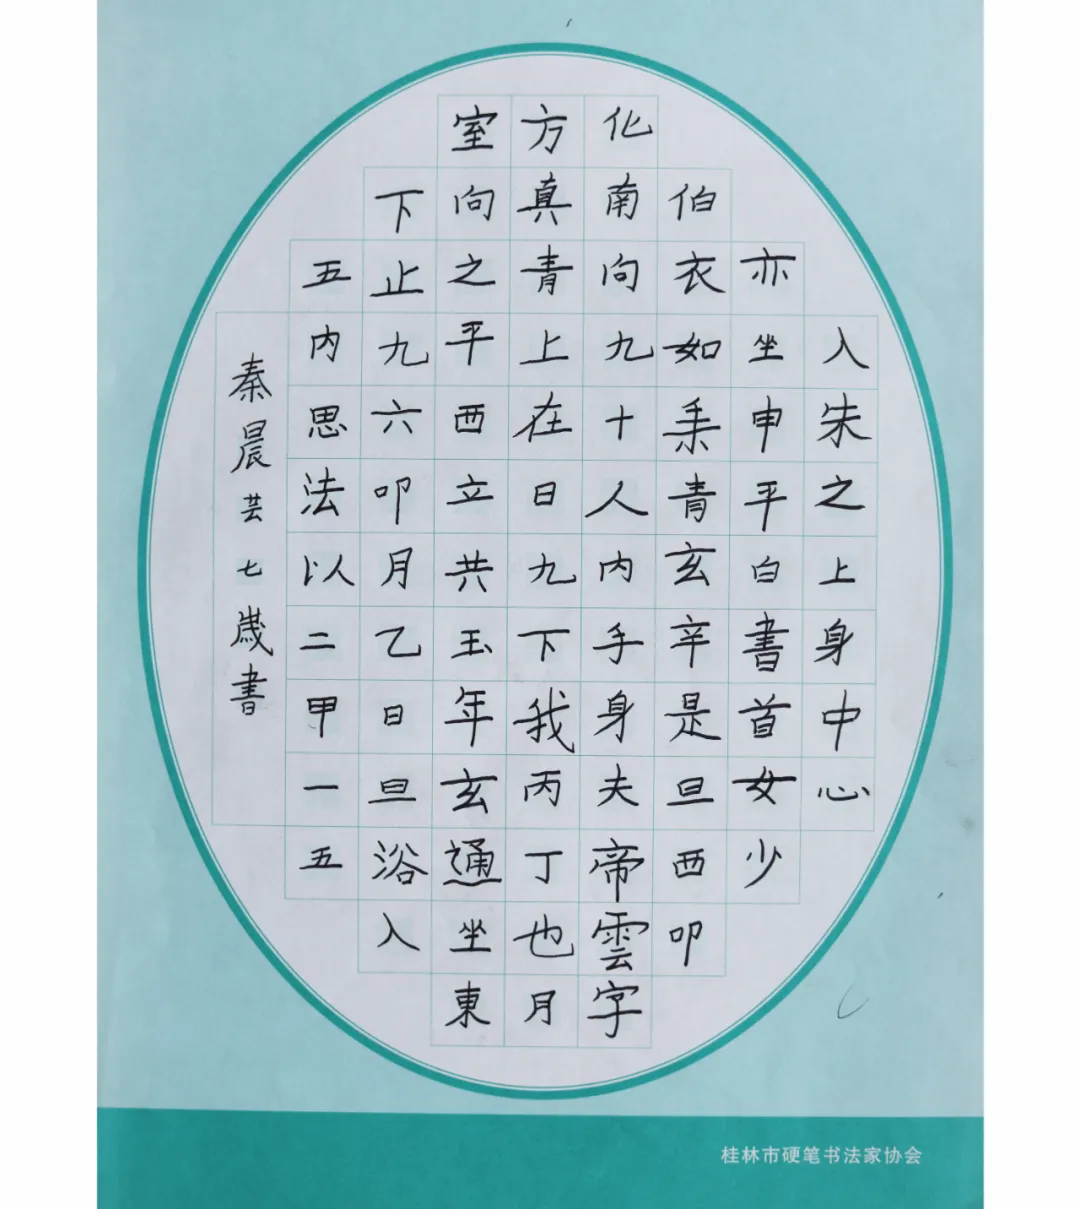 入朱之上身中心
亦坐申平白書首女少
伯衣如青玄辛是旦西叩
化南向九十人内手身夫帝雲字
方真青上在日九下我丙丁也月
室向之平西立共玉年玄通坐東
下止九六叩月乙日旦浴入
五内思法以二甲一五
秦晨芸七歲書
桂林市硬笔书法家协会